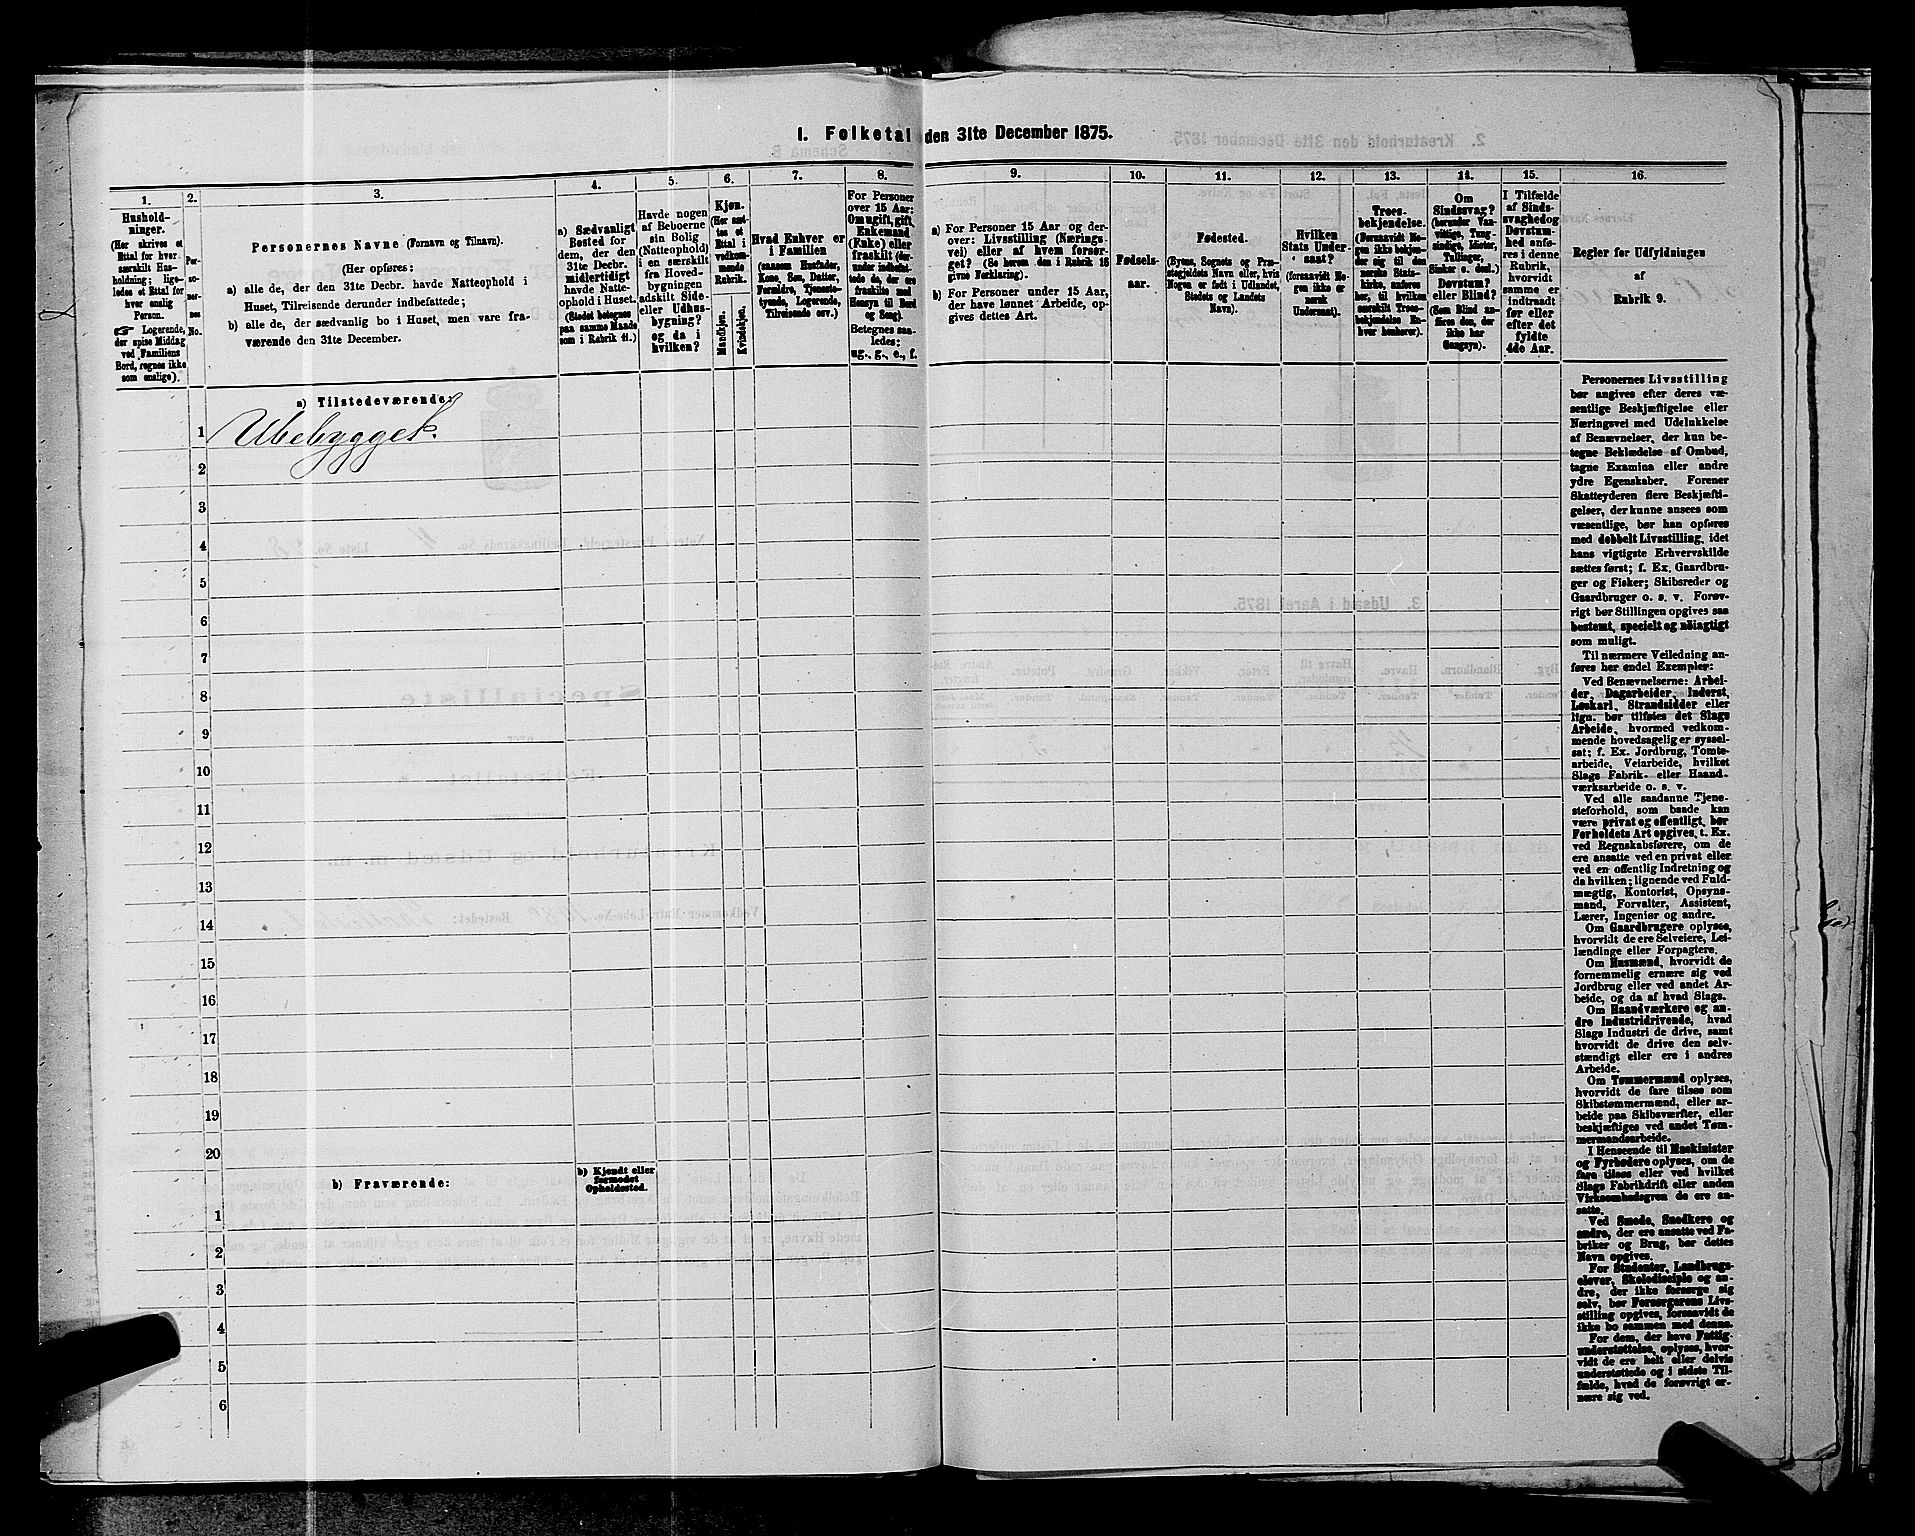 1. Folketal den 31te December 1875.
1.
Hushold-
ninger.
(Her skrives et
Ettal for hver
særskilt Hus-
holdning; lige-
ledes et Ettal for
hver enslig
Person.
☞ Logerende,
der spise Middag
ved Familiens
Bord, regnes ikke
som enslige).
2.
Per-
so-
ner-
nes
No.
3.
Personernes Navne (Fornavn og Tilnavn).
(Her opføres:
a) alle de, der den 31te Decbr. havde Natteophold i
Huset, Tilreisende derunder indbefattede;
b) alle de, der sædvanlig bo i Huset, men vare fra-
værende den 31te December.
4.
a) Sædvanligt
Bosted for
dem, der den
31te Decbr.
midlertidigt
havde Natte-
ophold i Huset.
(Stedet betegnes
paa samme Maade
som i Rubrik 11.)
5.
Havde nogen
af Beboerne
sin Bolig
(Natteophold)
i en særskilt
fra Hoved-
bygningen
adskilt Side-
eller Udhus-
bygning?
og da i
hvilken?
6.
Kjøn.
(Her sæt-
tes et
Ettal i
vedkom-
mende
Rubrik.
Mandkjøn.
Kvindekjøn.
7.
Hvad Enhver er
i Familien
(saasom Husfader,
Kone, Søn, Datter,
Forældre, Tjeneste-
tyende, Logerende,
Tilreisende osv.)
8.
For Personer
over 15 Aar:
Om ugift, gift,
Enkemand
(Enke) eller
fraskilt (der-
under indbefat-
tede de, der ere
fraskilte med
Hensyn til Bord
og Seng).
Betegnes saa-
ledes:
ug., g., e., f.
9.
a) For Personer 15 Aar og der-
over: Livsstilling (Nærings-
vei) eller af hvem forsør-
get? (Se herom den i Rubrik 16
givne Forklaring).
b) For Personer under 15 Aar,
der have lønnet Arbeide, op-
gives dettes Art.
10.
Fødsels-
aar.
11.
Fødested.
(Byens, Sognets og Præ-
stegjeldets Navn eller, hvis
Nogen er født i Udlandet,
Stedets og Landets
Navn).
12.
Hvilken
Stats Under-
saat?
(foresaavidt No-
gen ikke er
norsk
Undersaat).
13.
Troes-
bekjendelse.
(Foresaavidt No-
gen ikke bekjen-
der sig til den
norske Stats-
kirke, anføres
her, til hvilken
særskilt Troes-
bekjendelse En-
hver henhører).
14.
Om
Sindssvag?
(herunder Van-
vittige, Tung-
sindige, Idioter,
Tullinger,
Sinker o. desl.)
Døvstum?
eller Blind?
(Som Blind an-
føres den, der
ikke har
Gangsyn).
15.
I Tilfælde
af Sinds-
svaghed og
Døvstum-
hed anfø-
res i denne
Rubrik,
hvorvidt
samme er
indtraadt
før eller
efter det
fyldte
4de Aar.
16.
Regler for Udfyldningen
af
Rubrik 9.
a) Tilstedeværende:
1 Ubebygget.
2
3
4
5
6
7
8
9
10
11
12
13
14
15
16
17
18
19
20
b) Fraværende:
b) Kjendt eller
formodet
Opholdssted.
1
2
3
4
5
6
Personernes Livsstilling
bør angives efter deres væ-
sentlige Beskjæftigelse eller
Næringsvei med Udelukkelse
af Benævnelser, der kun be-
tegne Beklædelse af Ombud,
tagne Examina eller andre
ydre Egenskaber. Forener
Skatteyderen flere Beskjæfti-
gelser, der kunne ansees som
væsentlige, bør han opføres
med dobbelt Livsstilling, idet
hans vigtigste Erhvervskilde
sættes først; f. Ex. Gaardbru-
ger og Fisker; Skibsreder og
Gaardbruger o. s. v. Forøv-
rigt bør Stillingen opgives saa
bestemt, specielt og nøiagtigt
som muligt.
Til nærmere Veiledning an-
føres her endel Exempler:
Ved Benævnelserne: Arbei-
der, Dagarbeider, Inderst,
Løskarl, Strandsidder eller
lign. bør tilføies det Slags
Arbeide, hvormed vedkom-
mende hovedsagelig er syssel-
sat; f. Ex. Jordbrug, Tomte-
arbeide, Veiarbeide, hvilket
Slags Fabrik- eller Haand-
værksarbeide o. s. v.
Ved alle saadanne Tjene-
steforhold, som baade kan
være privat og offentligt, bør
Forholdets Art opgives, t. Ex.
ved Regnskabsførere, om de
ere ansatte ved en privat eller
ved en offentlig Indretning og
da hvilken; lignende ved Fuld-
mægtig, Kontorist, Opsyns-
mand, Forvalter, Assistent,
Lærer, Ingeniør og andre.
Om Gaardbrugere oplyses,
hvorvidt de ere Selveiere, Lei-
lændinge eller Forpagtere.
Om Husmænd, hvorvidt de
fornemmelig ernære sig ved
Jordbrug eller ved andet Ar-
beide, og da af hvad Slags.
Om Haandværkere og an-
dre Industridrivende, hvad
Slags Industri de drive, samt
hvorvidt de drive den selv-
stændigt eller ere i andres
Arbeide.
Om Tømmermænd oplyses,
hvorvidt de fare tilsøs som
Skibstømmermænd, eller ar-
beide paa Skibsværfter, eller
beskjæftiges ved andet Tøm-
mermandsarbeide.
I Henseende til Maskinister
og Fyrbødere oplyses, om de
fare tilsøs eller ved hvilket
Slags Fabrikdrift eller anden
Virksomhedsgren de ere an-
satte.
Ved Smede, Snedkere og
andre, der ere ansatte ved Fa-
briker og Brug, bør dettes
Navn opgives.
For Studenter, Landbrugs-
elever, Skoledisciple og an-
dre, der ikke forsørge sig
selv, bør Forsørgerens Livs-
stilling opgives, forsaavidt de
ikke bo sammen med denne.
For dem, der have Fattig-
understøttelse, oplyses, hvor-
vidt de ere helt eller delvis
understøttede og i sidste Til-
fælde, hvad de forøvrigt er-
nære sig ved.